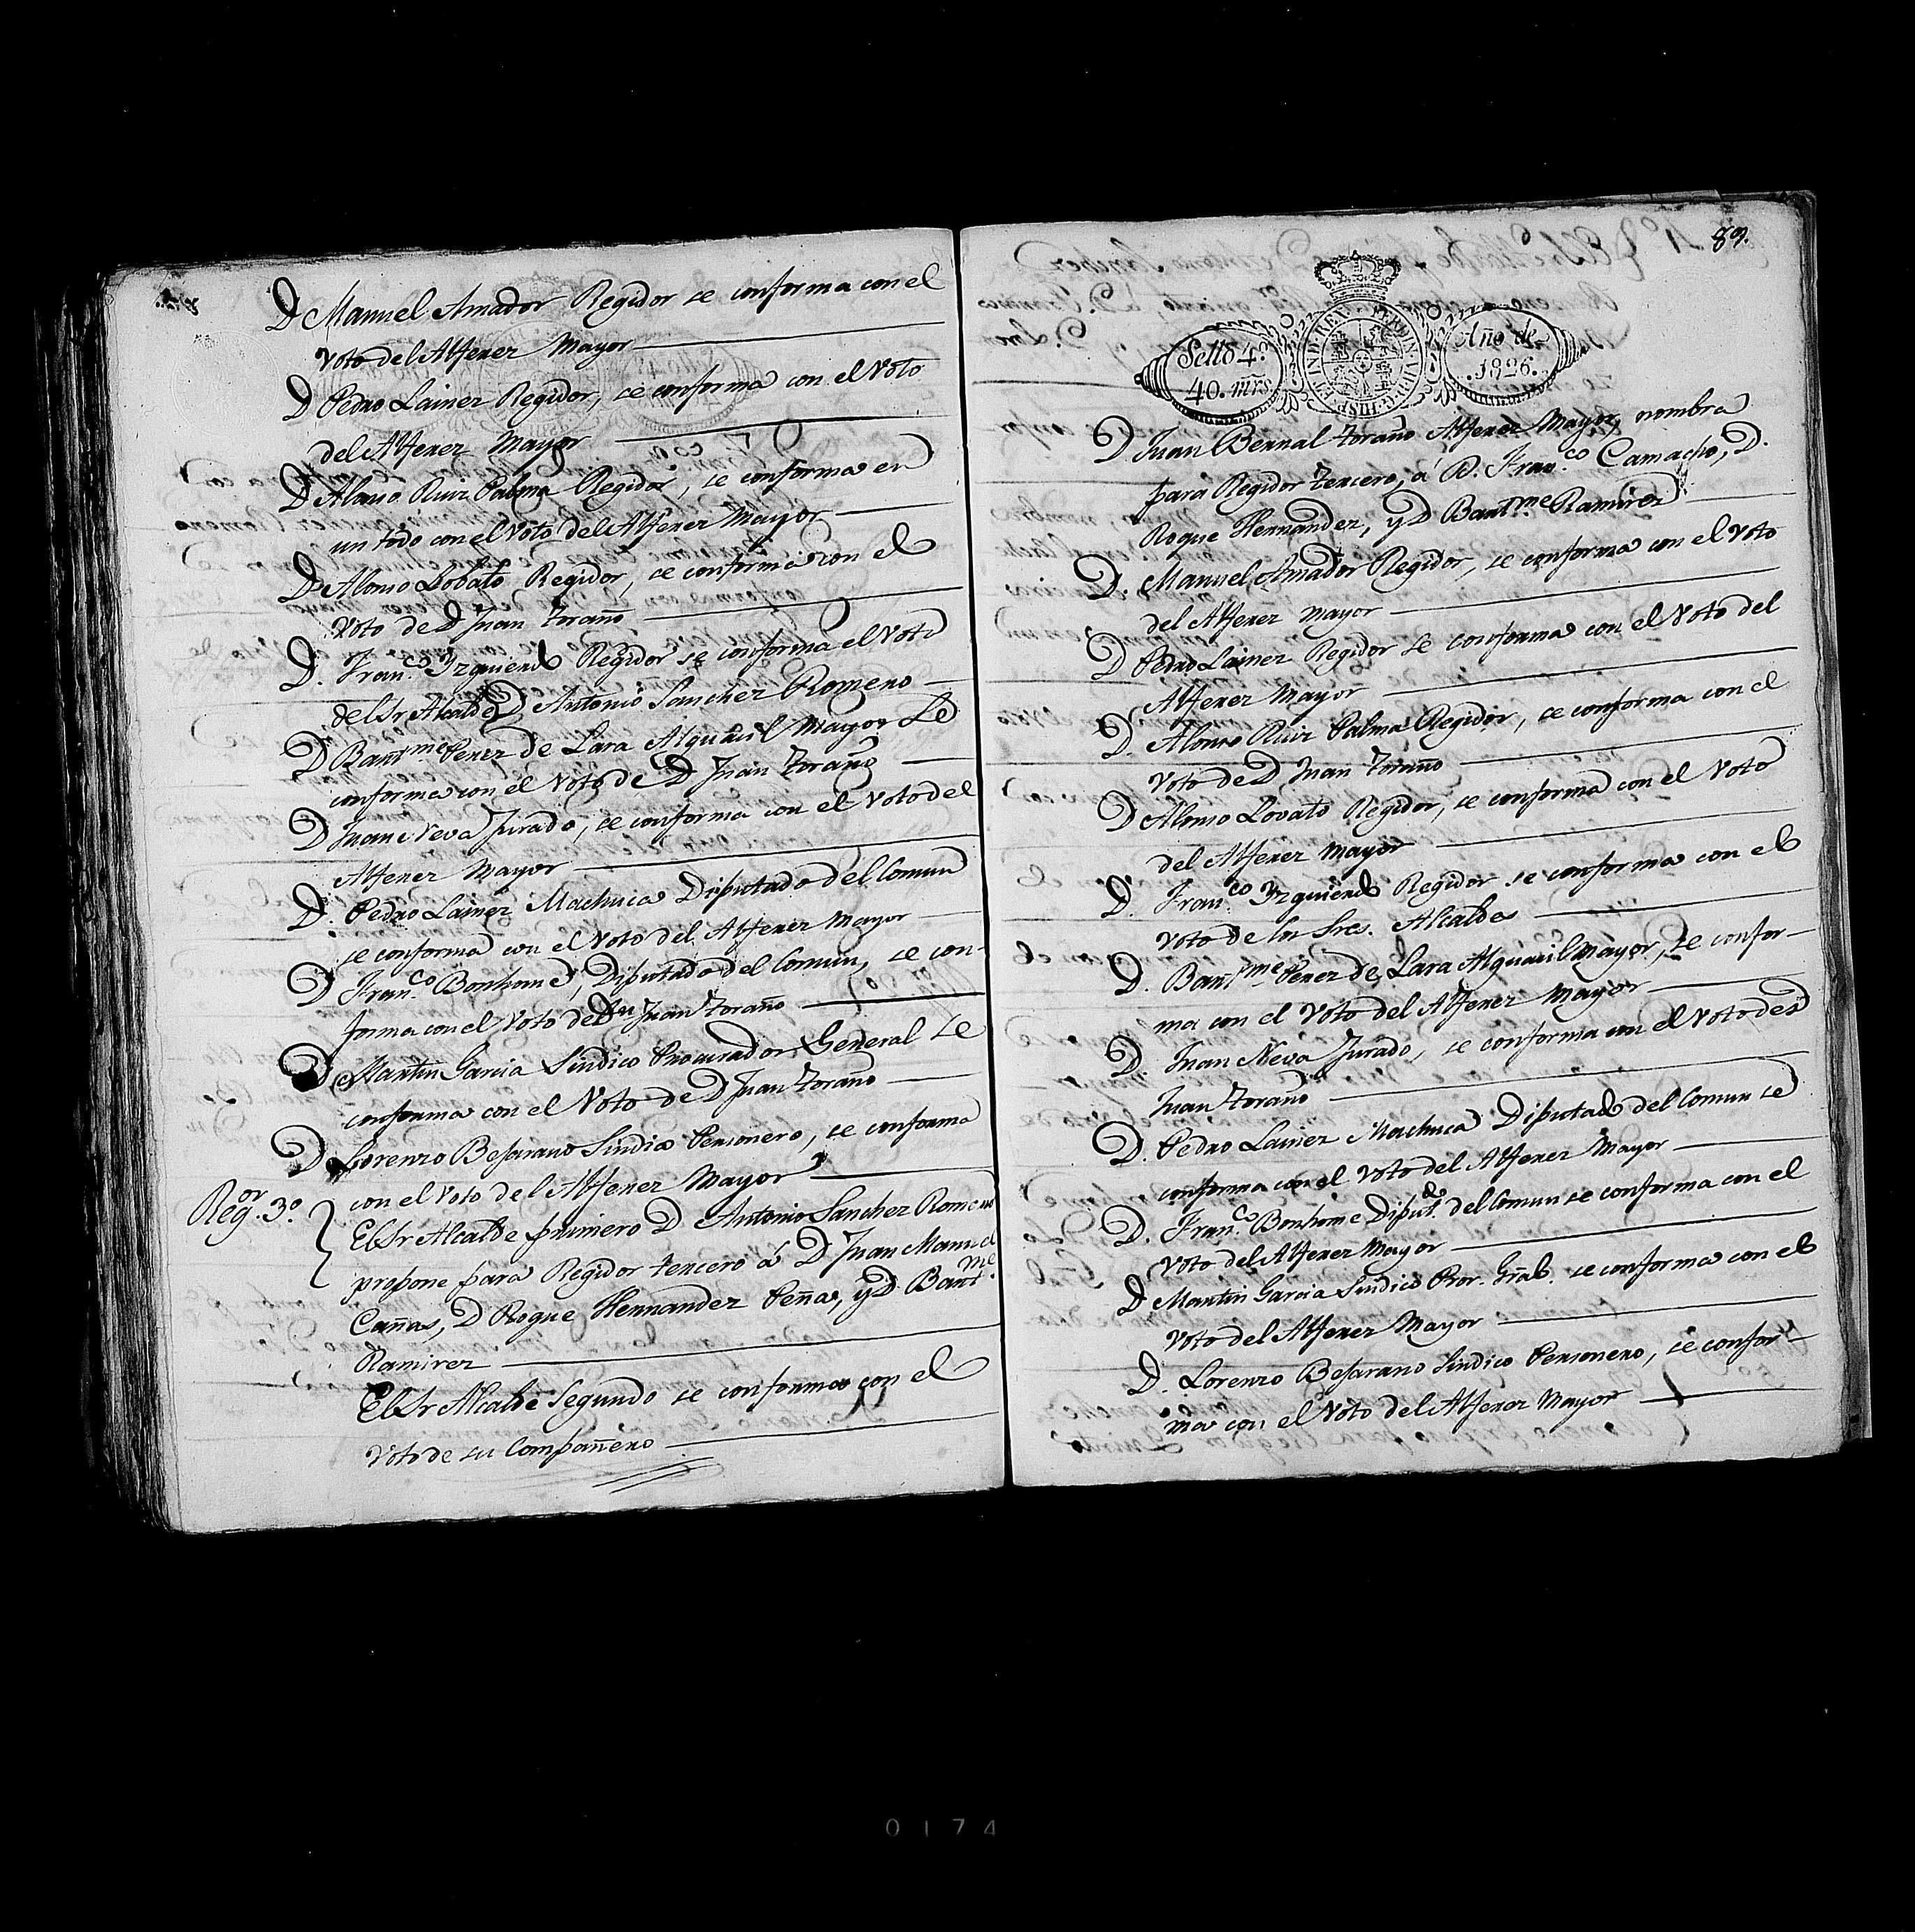 D Manuel Amador Regidor se conforma con el
Voto del Alferez Mayor
D Pedro Lainez Regidor, se conforma con el Voto
del Alferez Mayor
D Alonso Ruiz Palma Regidor, se conforma en
un todo con el Voto del Alferez Mayor
D Alonso Lobato Regidor, se conforma con el
Voto de D Juan Toraño
D. Fran.co Yzquierdo Regidor se conforma el Voto
del Sr Alcalde D Antonio Sanchez Romero
D Bart.me Perez de Lara Alguacil Mayor se
conforma con el Voto de D Juan Toraño
D Juan Neva Jurado, se conforma con el Voto del
Alferez Mayor
D. Pedro Lainez Machuca Diputado del Comun
se conforma con el Voto del Alferez Mayor
D Fran.co Bonhome, Diputado del Comun, se con-
forma con el Voto de Dn Juan Toraño
D Martin Garcia Sindico Procurador General se
conforma con el Voto de D Juan Toraño
D Lorenzo Bejarano Sindico Personero, se conforma
con el Voto del Alferez Mayor
Reg.or 3.o
El Sr Alcalde primero D Antonio Sanchez Romero
propone para Regidor tercero á D Juan Manuel
Cañas, D Roque Hernandez Peña, y D Bart.me
Ramirez
El Sr Alcalde Segundo se conforma con el
Voto de su Compañero
89.
Sello 4.o
40. mrs
HISP. ET IND. REX FERDIN. VII. D. G.
Año de
1826.
D Juan Bernal Toraño Alferez Mayor, nombra
para Regidor tercero, á D. Fran.co Camacho, D.
Roque Hernandez, y D Bart.me Ramirez
D. Manuel Amador Regidor, se conforma con el Voto
del Alferez Mayor
D Pedro Lainez Regidor se conforma con el Voto del
Alferez Mayor
D. Alonso Ruiz Palma Regidor, se conforma con el
Voto de D Juan Toraño
D Alonso Lovato Regidor, se conforma con el Voto
del Alferez Mayor
D. Fran.co Yzquierdo Regidor se conforma con el
Voto de los Sres. Alcaldes
D. Bart.me Perez de Lara Alguacil Mayor, se confor-
ma con el Voto del Alferez Mayor
D. Juan Neva Jurado, se conforma con el Voto de D
Juan Toraño
D. Pedro Lainez Machuca Diputado del Comun se
conforma con el Voto del Alferez Mayor
D. Fran.co Bonhome Diput.do del Comun se conforma con el
Voto del Alferez Mayor
D Martin Garcia Sindico Pror. Gñal. se conforma con el
Voto del Alferez Mayor
D. Lorenzo Bejarano Sindico Personero, se confor-
ma con el Voto del Alferez Mayor
0174